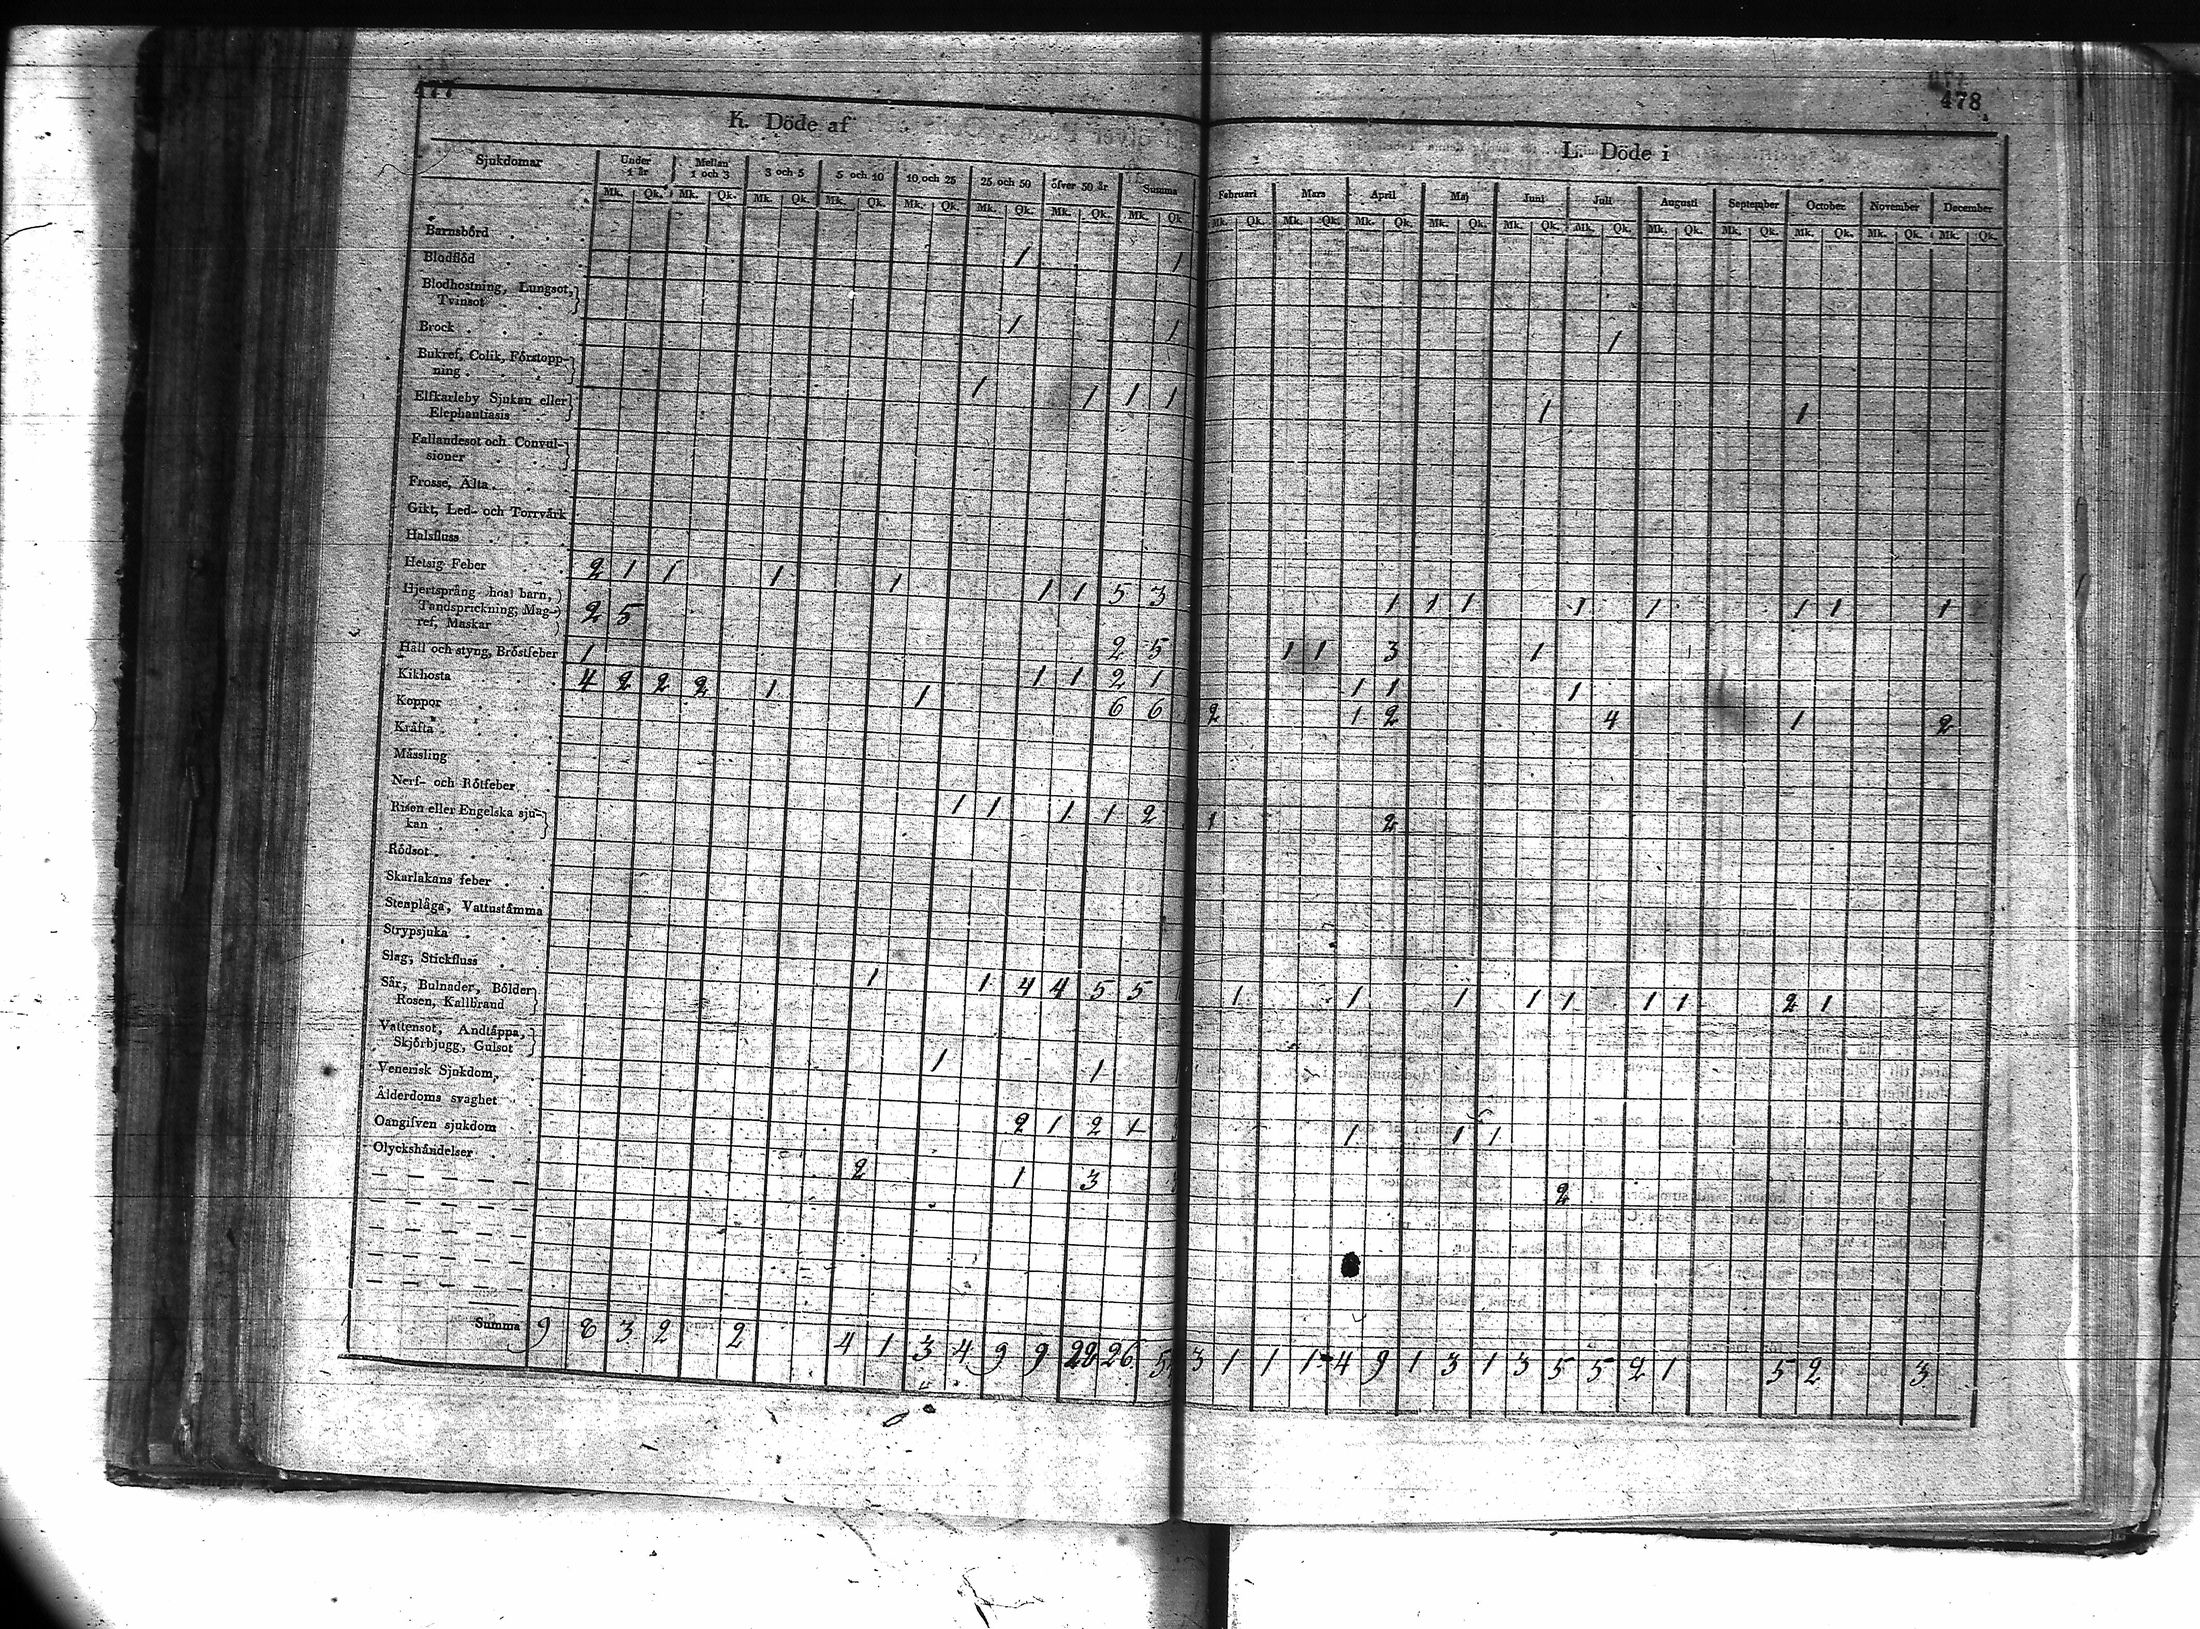 478
K. Döde af
L. Döde i
Sjukdomar Under 1 år Mellan 1 och 3 3 och 5 5 och 10 10 och 25 25 och 50 öfver 50 år Summa
Februari Mars April Maj Juni Juli Augusti September October November December
Mk. Qk. Mk. Qk. Mk. Qk. Mk. Qk. Mk. Qk. Mk. Qk. Mk. Qk. Mk. Qk.
Mk. Qk. Mk. Qk. Mk. Qk. Mk. Qk. Mk. Qk. Mk. Qk. Mk. Qk. Mk. Qk. Mk. Qk. Mk. Qk.
Barnsbörd
Blodflöd 1 1
Blodhostning, Lungsot,
Tvinsot
Brock 1 1 1
Bukref, Colik, Förstopp-
ning 1 1 1 1
Elfkarleby Sjukan eller 1 1
Elephantiasis
Fallandesot och Convul-
sioner
Frosse, Älta
Gikt, Led- och Torrvärk
Halsfluss
Hetsig Feber 2 1 1 1 1 1 1 5 3 1 1 1 1 1 1 1 1
Hjertsprång hos barn,
Tandsprickning, Mag-
ref, Maskar 2 5 2 5 1 1 3 1
Håll och styng, Bröstfeber 1 1 1 2 1 1 1 1
Kikhosta 4 2 2 2 1 1 6 6 2 1 2 4 1 2
Koppor
Kräfta
Mässling
Nerf- och Rötfeber 1 1 1 1 2 1 2
Risen eller Engelska sju-
kan
Rödsot
Skarlakans feber
Stenplåga, Vattustämma
Strypsjuka
Slag, Stickfluss 1 1 4 4 5 5 1 1 1 1 1 1 1 2 1
Sår, Bulnader, Bölder
Rosen, Kallbrand
Vattensot, Andtäppa,
Skjörbjugg, Gulsot 1 1
Venerisk Sjukdom,
Ålderdoms svaghet
Oangifven sjukdom 2 1 2 1 1 1 1
Olyckshändelser 2 1 3 2
Summa 9 8 3 2 2 4 1 3 4 9 9 22 26 5 3 1 1 1 4 9 1 3 1 3 5 5 2 1 5 2 3